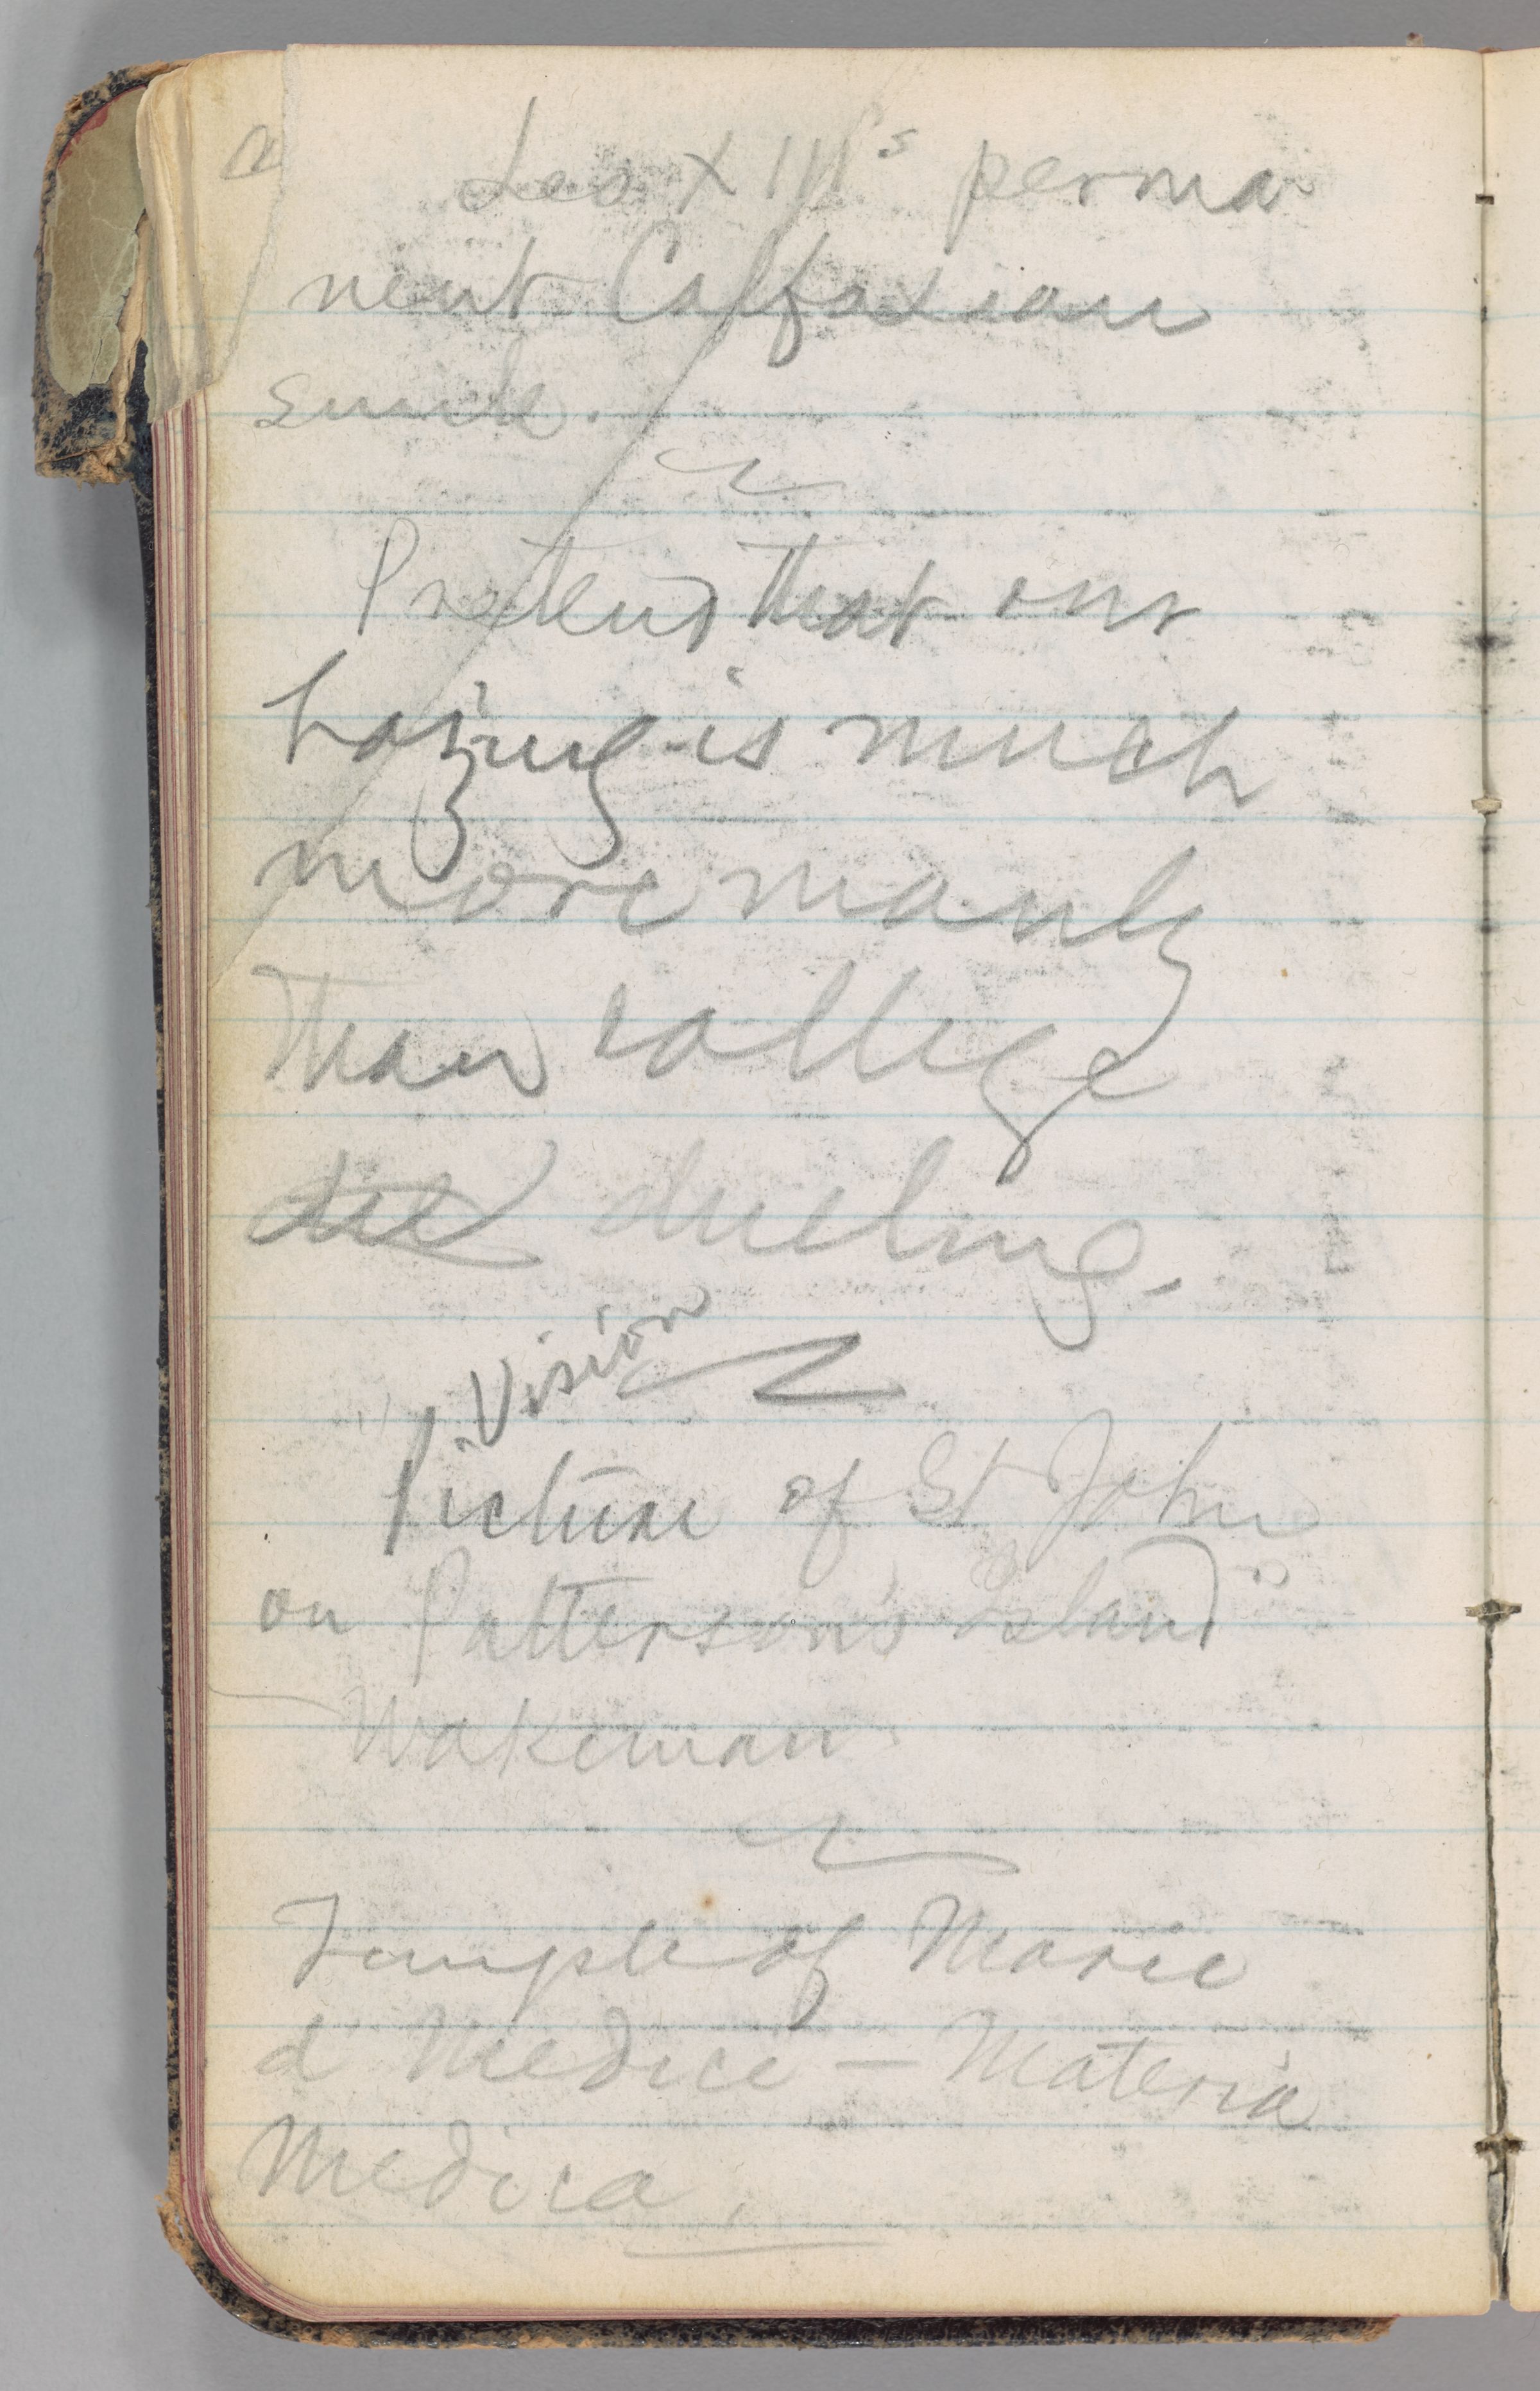 Leo XIII's perma
nent Colfaxian
smile.
Pretend that our
hazing is much
more manly
than college
due dueling.
Vision
Picture of St John
on Patterson's Island
Wakeman
Temple of Marie
d' Medici — Materia
Medica.